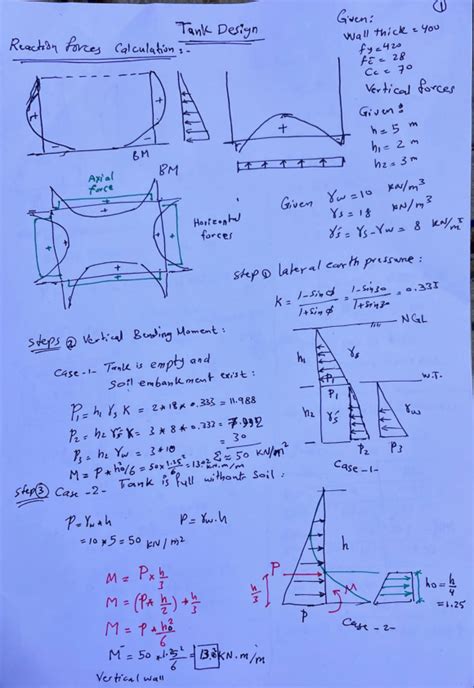 ①
Tank Design
Reaction forces Calculation :-
Given:
Wall thick = 400
fy = 420
fc = 28
Cc = 70
Vertical forces
Given:
h = 5 m
h1 = 2 m
h2 = 3 m
BM
BM
Axial
force
Horizontal
forces
Given γw = 10 kN/m³
γs = 18 kN/m³
γs' = γs - γw = 8 kN/m³
step ① lateral earth pressure:
K = 1-sinϕ / 1+sinϕ = 1-sin30 / 1+sin30 = 0.333
NGL
h1
γs
P1
P1
W.T.
h2
γs'
γw
P2
P3
Case -1-
steps ② Vertical Bending Moment:
Case -1- Tank is empty and
soil embankment exist:
P1 = h1 γs K = 2*18*0.333 = 11.988
P2 = h2 γs' K = 3*8*0.333 = 7.992
P3 = h2 γw = 3*10 = 30
Σ = 50 kN/m²
M = P*h0²/6 = 50*1.25²/6 = 13.02 kN.m/m
step ③ Case -2- Tank is full without soil:
P = γw*h
P = γw.h
= 10*5 = 50 kN/m²
M = P*h/3
M = (P*h/2)*h/3
M = P*h0²/6
M = 50*1.25²/6 = 13.2 kN.m/m
Vertical wall
P
h
h/3
M
P
h0 = h/4
= 1.25
Case -2-